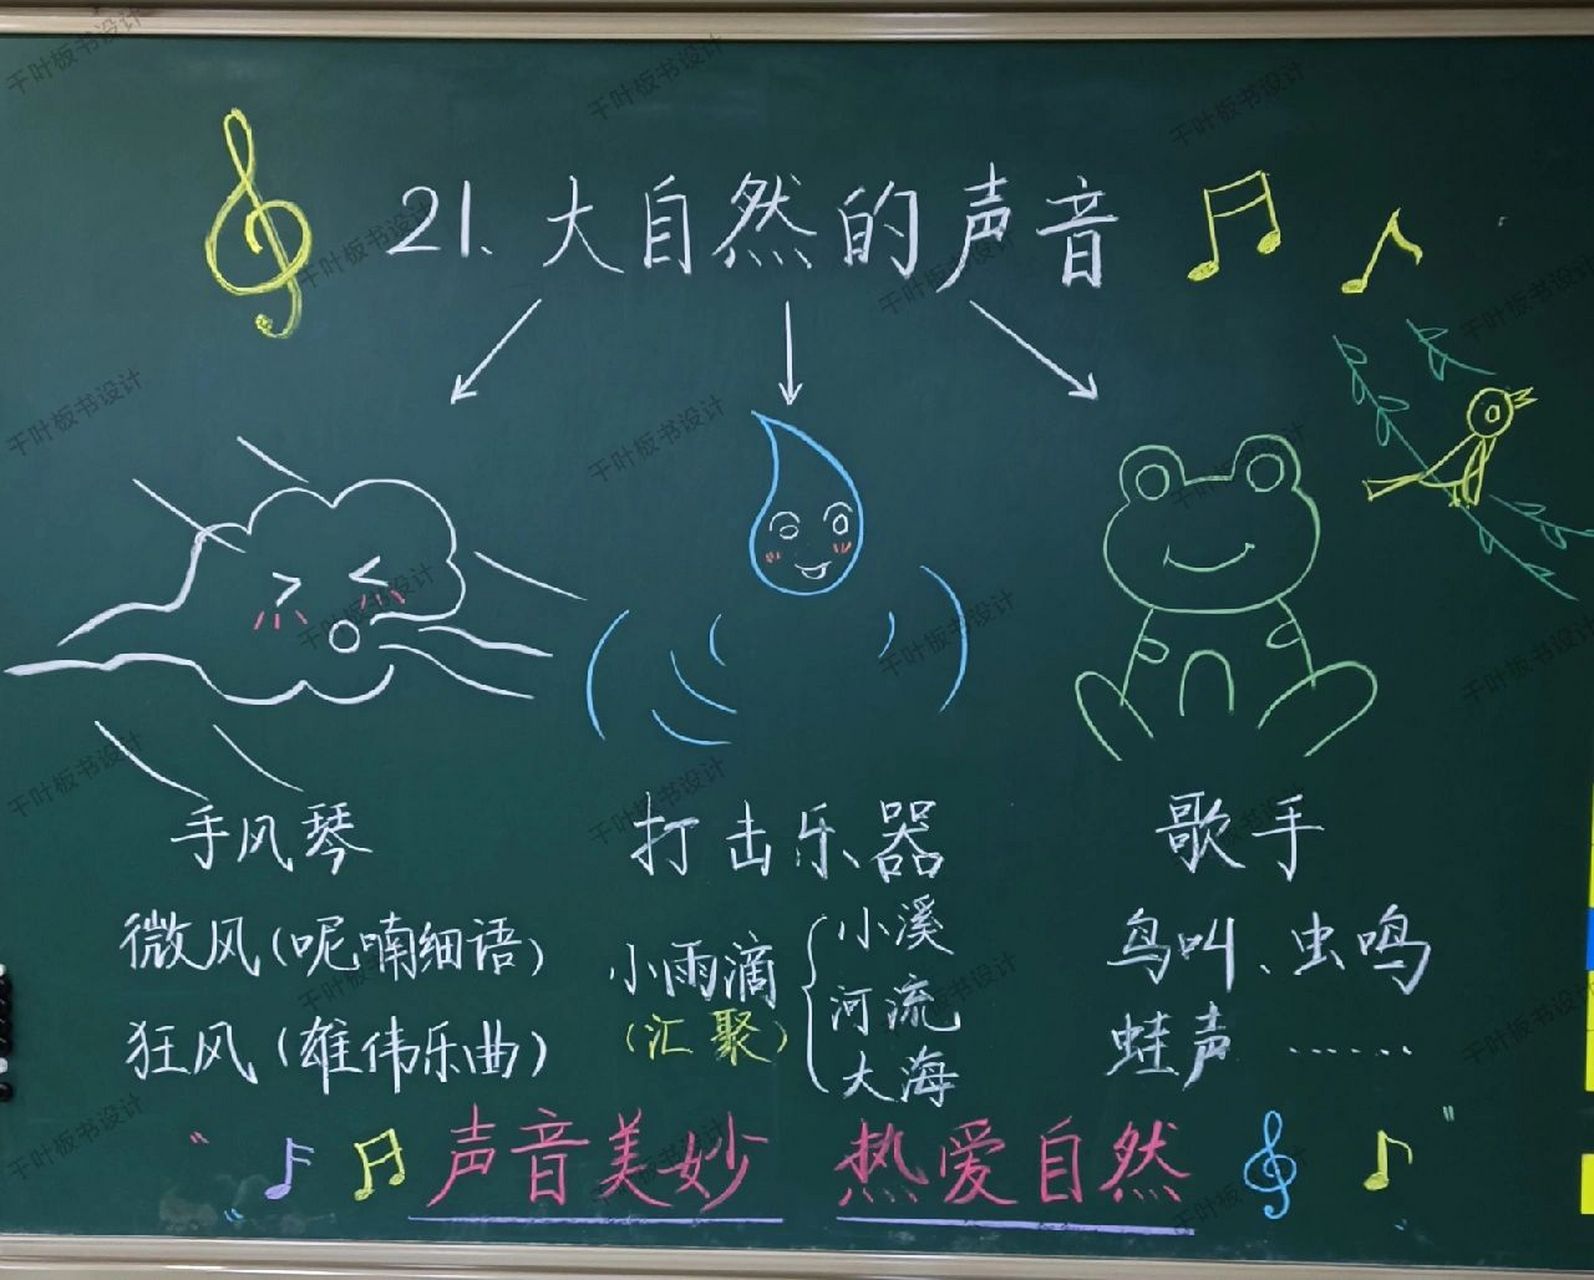 21、大自然的声音
手风琴
微风(呢喃细语)
狂风(雄伟乐曲)
打击乐器
小雨滴
(汇聚)
小溪
河流
大海
歌手
鸟叫、虫鸣
蛙声 ......
声音美妙 热爱自然
千叶板书设计